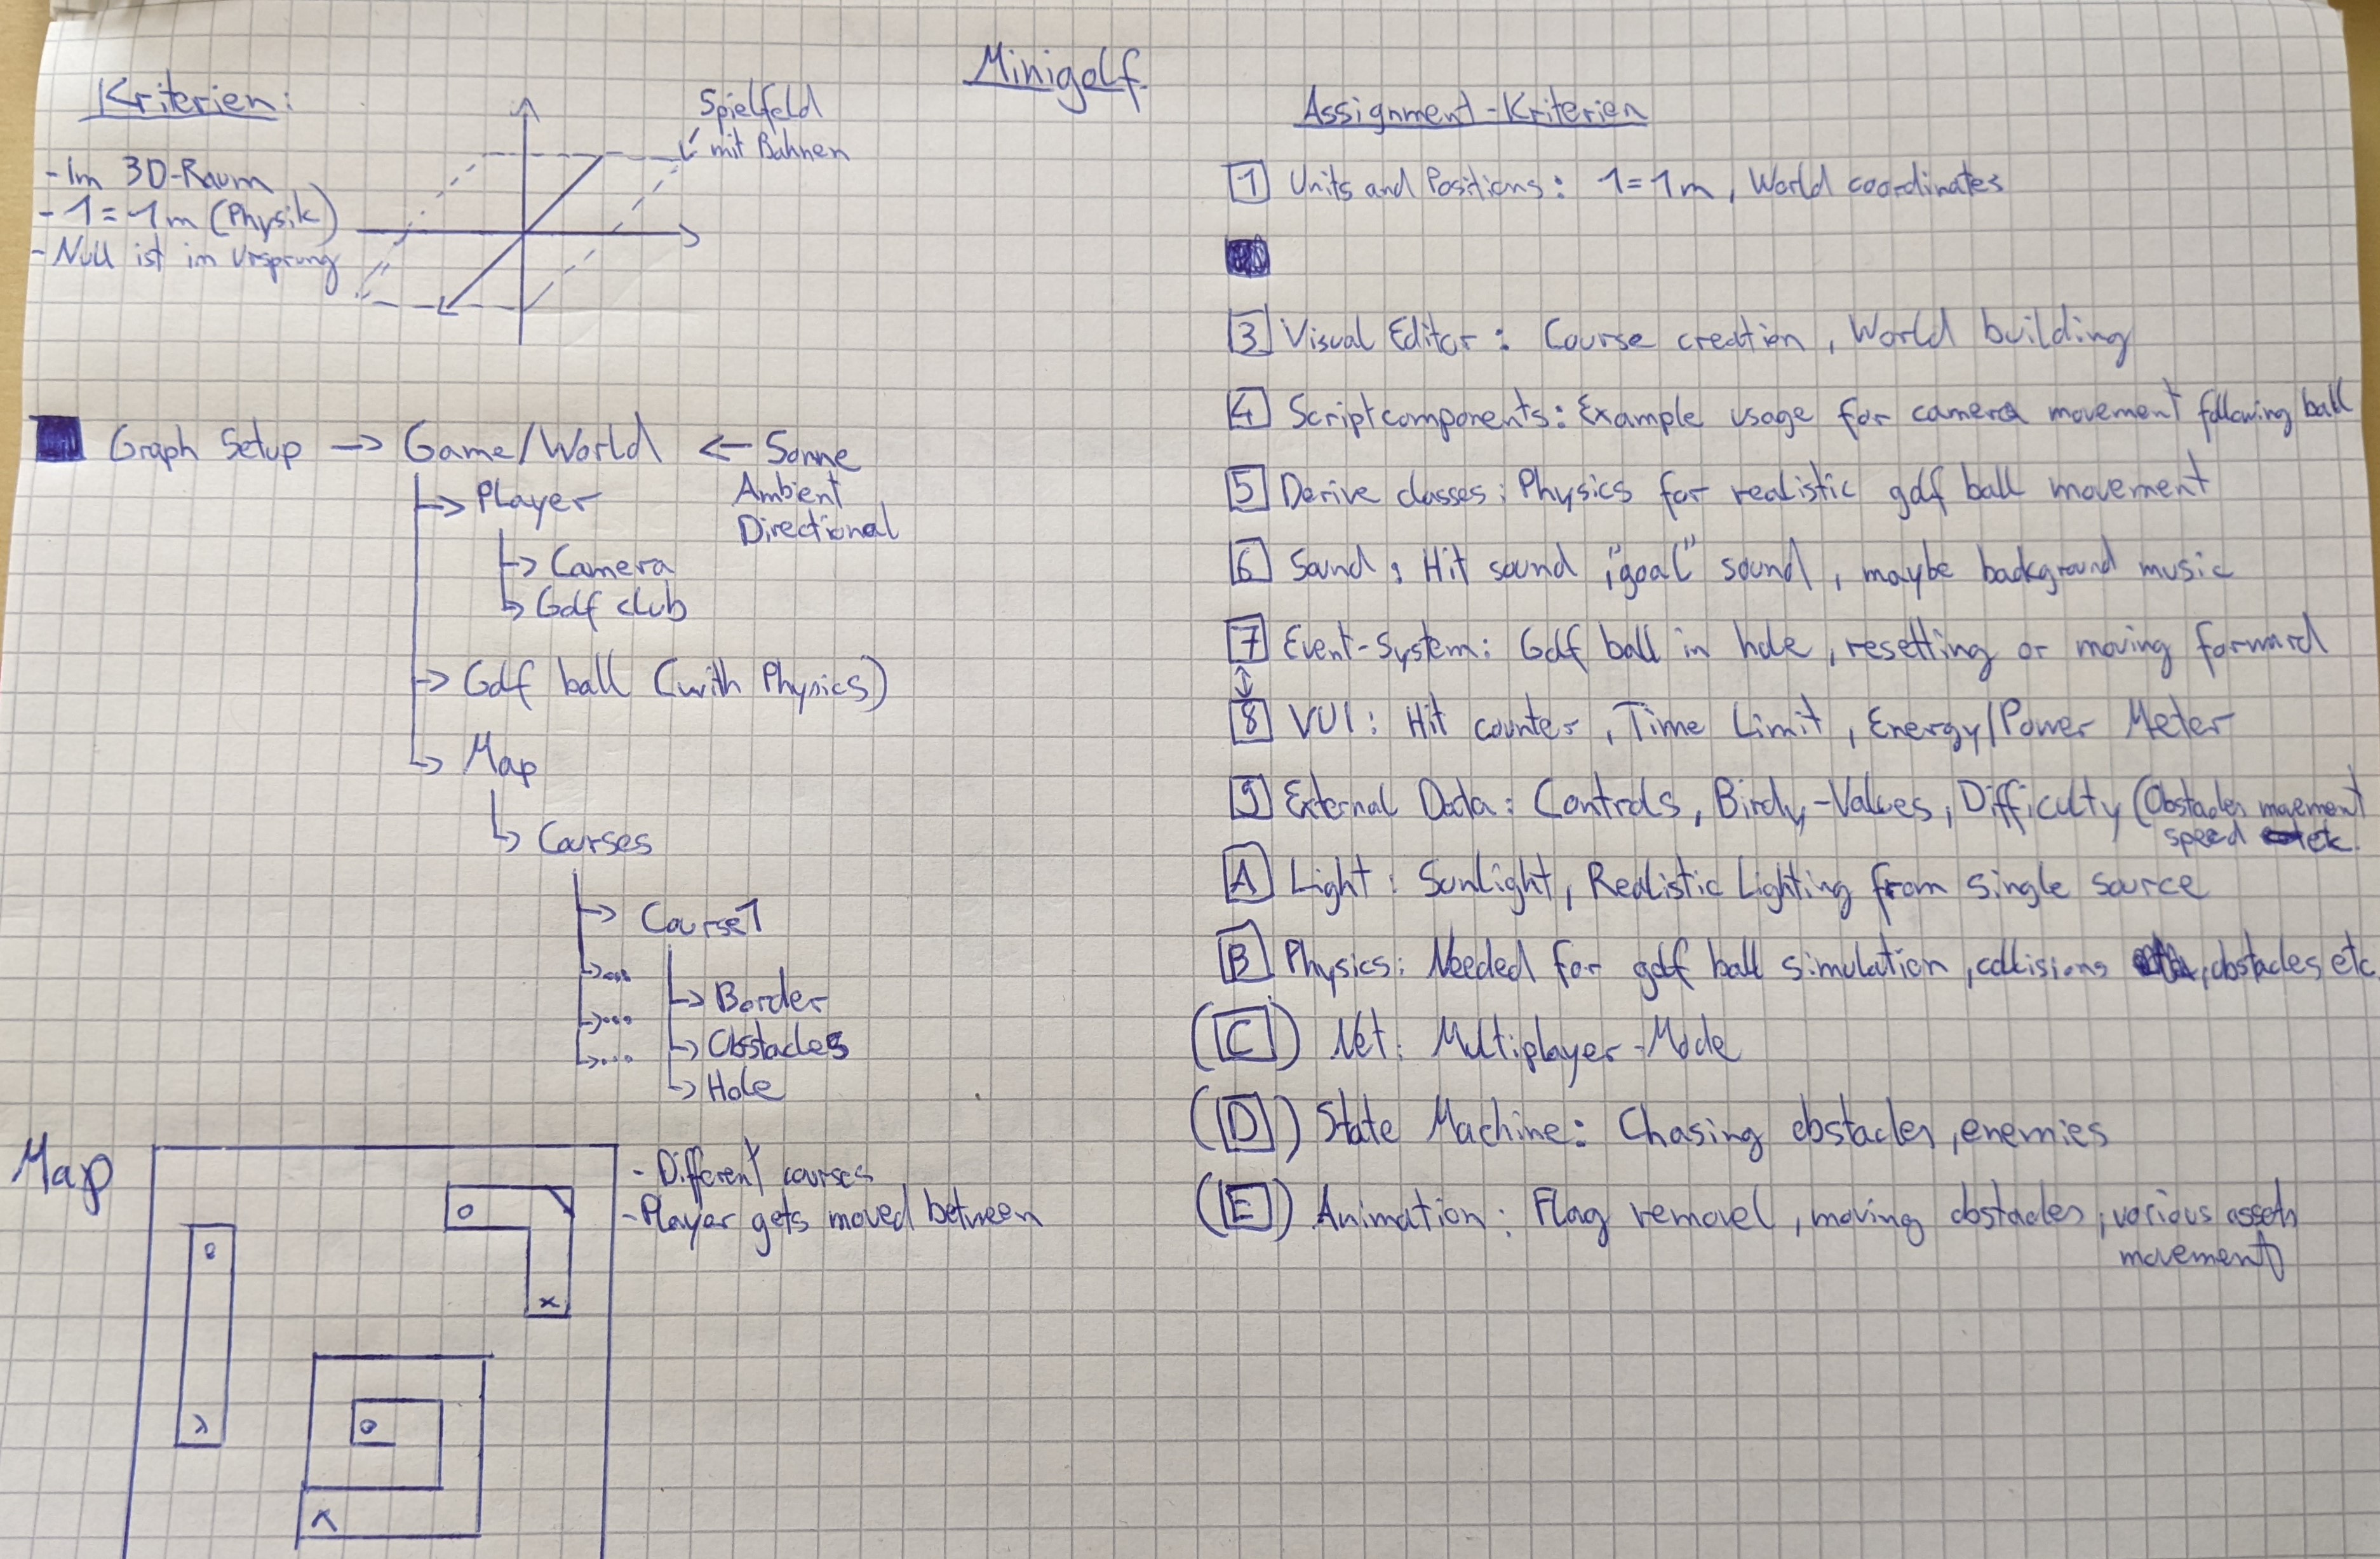 Minigolf
Kriterien:
- Im 3D-Raum
- 1 = 1m (Physik)
- Null ist im Ursprung
Spielfeld
mit Bahnen
Graph Setup -> Game/World <- Sonne
Ambient
Directional
Player
Camera
Golf club
Golf ball (with Physics)
Map
Courses
Course1
...
...
...
Border
Obstacles
Hole
Map
- Different courses
- Player gets moved between
Assignment-Kriterien
1 Units and Positions: 1=1m, World coordinates
3 Visual Editor: Course creation, World building
4 Scriptcomponents: Example usage for camera movement following ball
5 Derive classes: Physics for realistic golf ball movement
6 Sound: Hit sound, "goal" sound, maybe background music
7 Event-System: Golf ball in hole, resetting or moving forward
8 VUI: Hit counter, Time Limit, Energy/Power Meter
9 External Data: Controls, Birdy-Values, Difficulty (Obstacles movement
speed etc.
A Light: Sunlight, Realistic Lighting from single source
B Physics: Needed for golf ball simulation, collisions, obstacles etc
(C) Net: Multiplayer-Mode
(D) State Machine: Chasing obstacles, enemies
(E) Animation: Flag removel, moving obstacles, various assets
movement